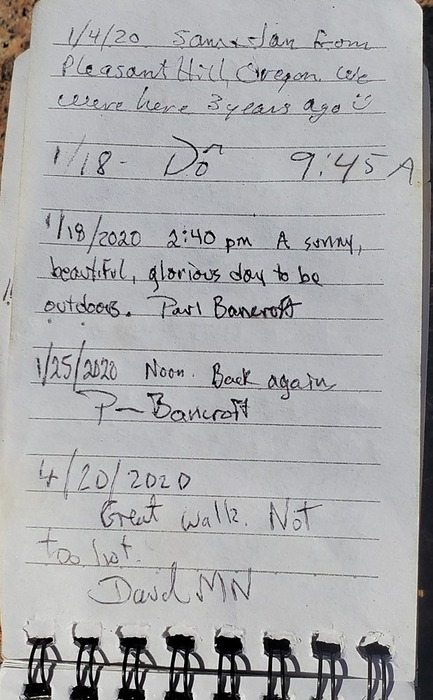 1/4/20 Sam & Jan from
Pleasant Hill, Oregon. We
were here 3 years ago ☺
1/18- Don 9:45 A
1/18/2020 2:40 pm A sunny,
beautiful, glorious day to be
outdoors. Paul Bancroft
1/25/2020 Noon. Back again
P— Bancroft
4/20/2020
Great walk. Not
too hot.
David MN